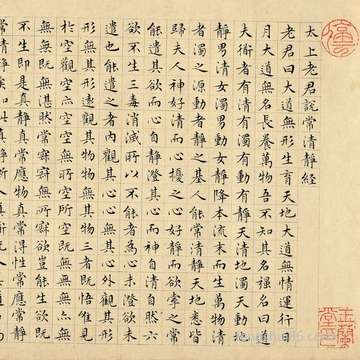 太上老君說常清靜經
老君曰大道無形生育天地大道無情運行日
月大道無名長養萬物吾不知其名強名曰道
夫衟者有清有濁有動有靜天清地濁天動地
靜男清女濁男動女靜降本流末而生萬物清
者濁之源動者靜之基人能常清靜天地悉皆
歸夫人神好清而心擾之心好靜而欲牽之常
能遣其欲而心自靜澄其心而神自清自然六
欲不生三毒消滅所以不能者為心未澄欲未
遣也能遣之者內觀其心心無其心外觀其形
形無其形遠觀其物物無其物三者既悟惟見
於空觀空亦空空無所空所空既無無無亦無
無無既無湛然常寂寂無所寂欲豈能生欲既
不生即是真靜真常應物真常得性常應
常清靜矣如此真靜